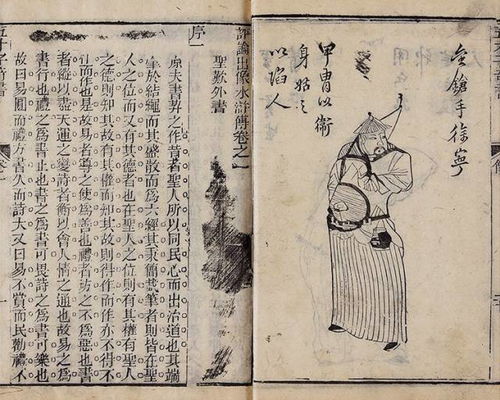 金鎗手徐寧
甲冑以衛
身
以陷人
評論出像水滸傳卷之一
聖歎外書
序一
原夫書契之作昔者聖人所以同民心而出治道也其端
肇於結繩而其盛殽而為六經其秉簡載筆者則皆在聖
人之位而又有其德者也在聖人之位則有其權有聖人
之德則知其故有其權而知其故則得作而作亦不得不
作而作也是故易者導之使為善也禮者坊之不為惡也書
者縱以盡天運之變詩者衡以會人情之通也故易之為
書行也禮之為書止也書之為書可畏詩之為書可樂也
故曰易圓而禮方書久而詩大又曰易不賞而民勸禮不
五才子奇書